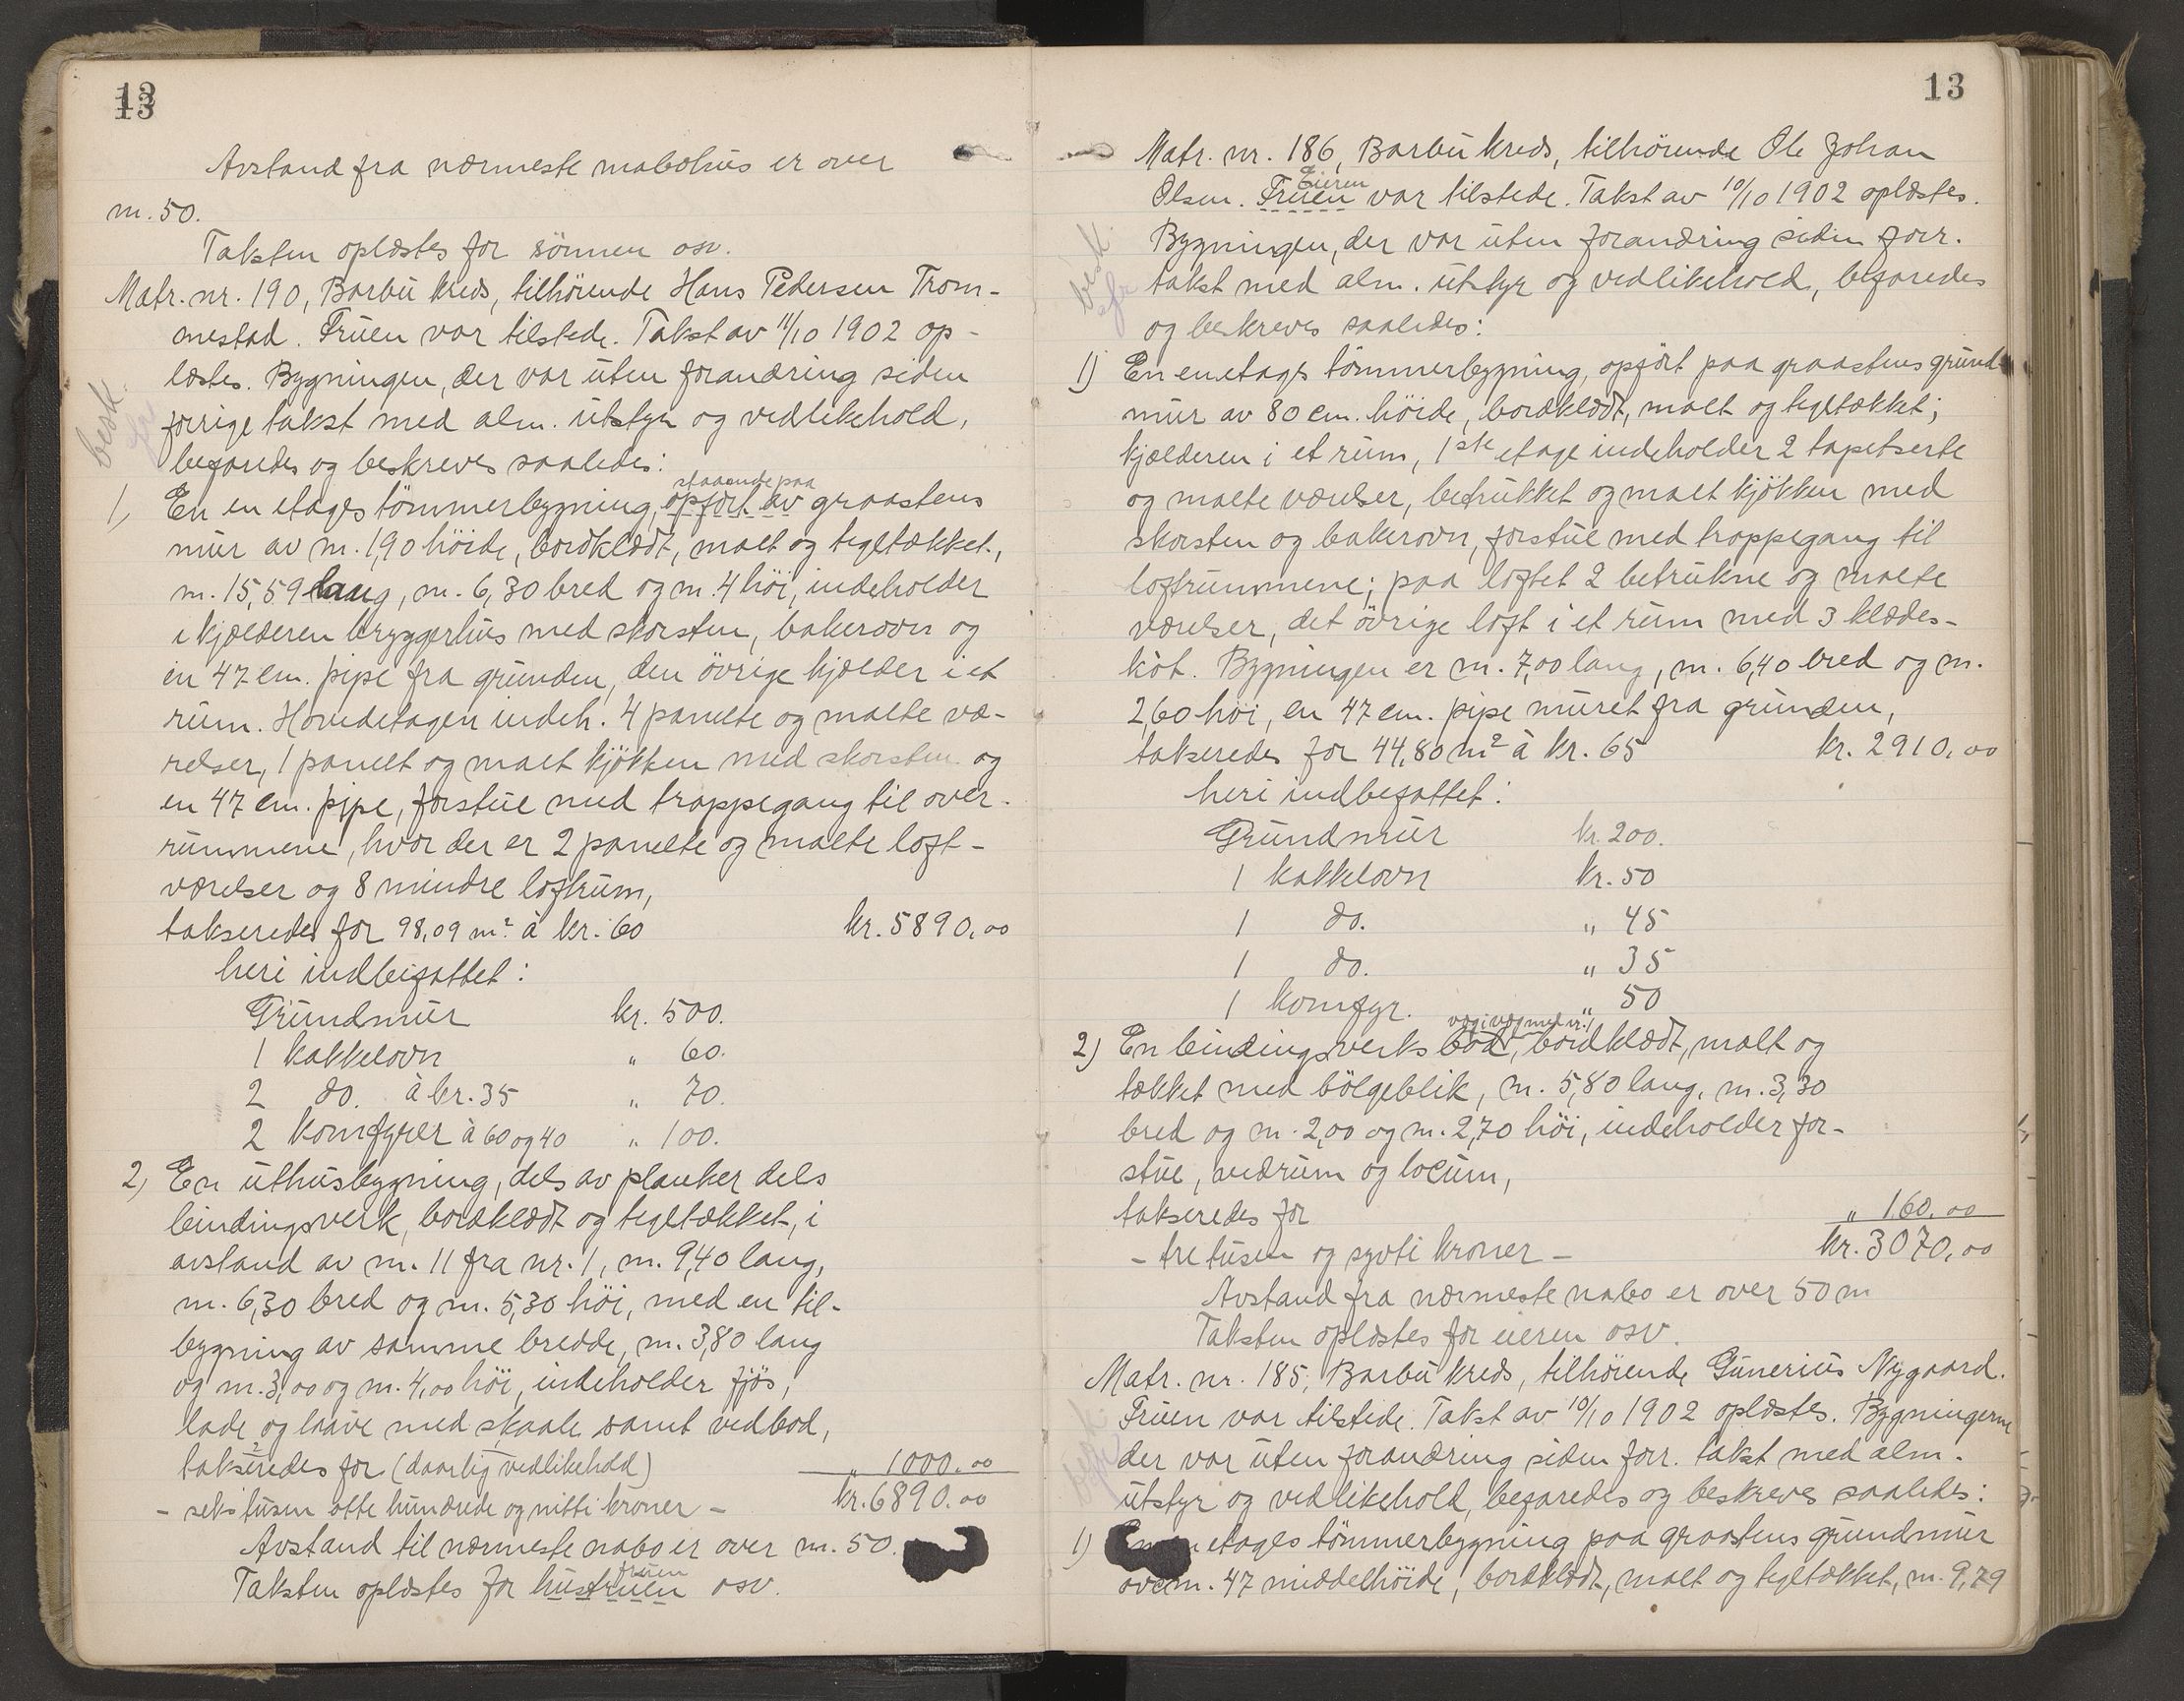 13
Avstand fra nærmeste nabohus er over
m. 50.
Taksten oplæstes for sönnen osv.
Matr. nr. 190, Barbu kreds, tilhörende Hans Pedersen Trom-
mestad. Fruen var tilstede. Takst av 11/10 1902 op-
læstes. Bygningen, der var uten forandring siden
forrige takst med alm. utstyr og vedlikehold,
besk.
befaredes og beskreves saaledes:
staaende paa
1) En en etages tömmerbygning, opfört av graastens
mur av m. 1,90 höide, bordklædt, malt og tegltækket,
m. 15,59 lang, m. 6,30 bred og m. 4 höi, indeholder
i kjælderen bryggerhus med skorsten, bakerovn og
en 47 cm. pipe fra grunden, den övrige kjælder i et
rum. Hovedetagen indeh. 4 panelte og malte væ-
relser, 1 panelt og malt kjökken med skorsten og
en 47 cm. pipe, forstue med trappegang til over-
rummene, hvor der er 2 panelte og malte loft-
værelser og 8 mindre loftrum,
takseredes for 98,09 m² à kr. 60 kr. 5890,00
heri indbefattet:
Grundmur kr. 500.
1 kakkelovn " 60.
2 do. à kr. 35 " 70.
2 Komfyrer à 60 og 40 " 100.
2) En uthusbygning, dels av planker dels
bindingsverk, bordklædt og tegltækket, i
avstand av m. 11 fra nr. 1, m. 9,40 lang,
m. 6,30 bred og m. 5,30 höi, med en til-
bygning av samme bredde, m. 3,80 lang
og m. 3,00 og m. 4,00 höi, indeholder fjös,
lade og laave med skaale samt vedbod,
takseredes for (daarlig vedlikehold) " 1000.00
- seks tusen otte hundrede og nitti kroner - kr. 6890.00
Avstand til nærmeste nabo er over m. 50.
fruen
Taksten oplæstes for hustruen osv.
13
Matr. nr. 186, Barbu kreds, tilhörende Ole Johan
Eieren
Olsen. Fruen var tilstede. Takst av 10/10 1902 oplæstes.
besk.
Bygningen, der var uten forandring siden forr.
takst med alm. utstyr og vedlikehold, befaredes
og beskreves saaledes:
1) En en etages tömmerbygning, opfört paa graastens grund-
mur av 80 cm. höide, bordklædt, malt og tegltækket;
kjælderen i et rum, 1ste etage indeholder 2 tapetserte
og malte værelser, betrukket og malt kjökken med
skorsten og bakerovn, forstue med trappegang til
loftrummene; paa loftet 2 betrukne og malte
værelser, det övrige loft i et rum med 3 klædes-
kot. Bygningen er m. 7,00 lang, m. 6,40 bred og m.
2,60 höi, en 47 cm. pipe muret fra grunden,
takseredes for 44,80 m² à kr. 65 kr. 2910,00
heri indbefattet:
Grundmur kr. 200.
1 kakkelovn kr. 50
1 do. " 45
1 do. " 35
1 komfyr. " 50
væg i væg med nr. 1
2) En bindingsverks bod, bordklædt, malt og
tækket med bölgeblik, m. 5,80 lang, m. 3,30
bred og m. 2,00 og m. 2,70 höi, indeholder for-
stue, vedrum og locum,
takseredes for " 160.00
- tre tusen og sytti kroner - kr. 3070,00
Avstand fra nærmeste nabo er over 50 m
Taksten oplæstes for eieren osv.
Matr. nr. 185, Barbu kreds, tilhörende Gunerius Nygaard.
Fruen var tilstede. Takst av 10/10 1902 oplæstes. Bygningerne
der var uten forandring siden forr. takst med alm.
utstyr og vedlikehold, befaredes og beskreves saaledes:
1) etages tömmerbygning paa graastens grundmur
m. 47 middelhöide, bordklædt, malt og tegltækket, m. 9,79